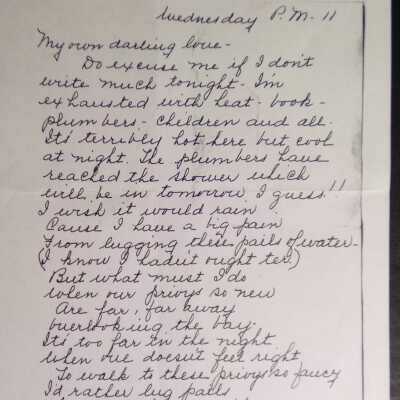 Wednesday P.M. 11
My own darling love -
Do excuse me if I don't
write much tonight - I'm
exhausted with heat - book -
plumbers - children and all.
It's terribly hot here but cool
at night. The plumbers have
reached the shower which
will be in tomorrow I guess!!
I wish it would rain
Cause I have a big pain
From lugging these pails of water -
(I know I hadn't ought ter)
But what must I do
When our privys so new
Are far, far away
overlooking the bay.
It's too far in the night
When one doesn't feel right
To walk to these privys so fancy
I'd rather lug pails